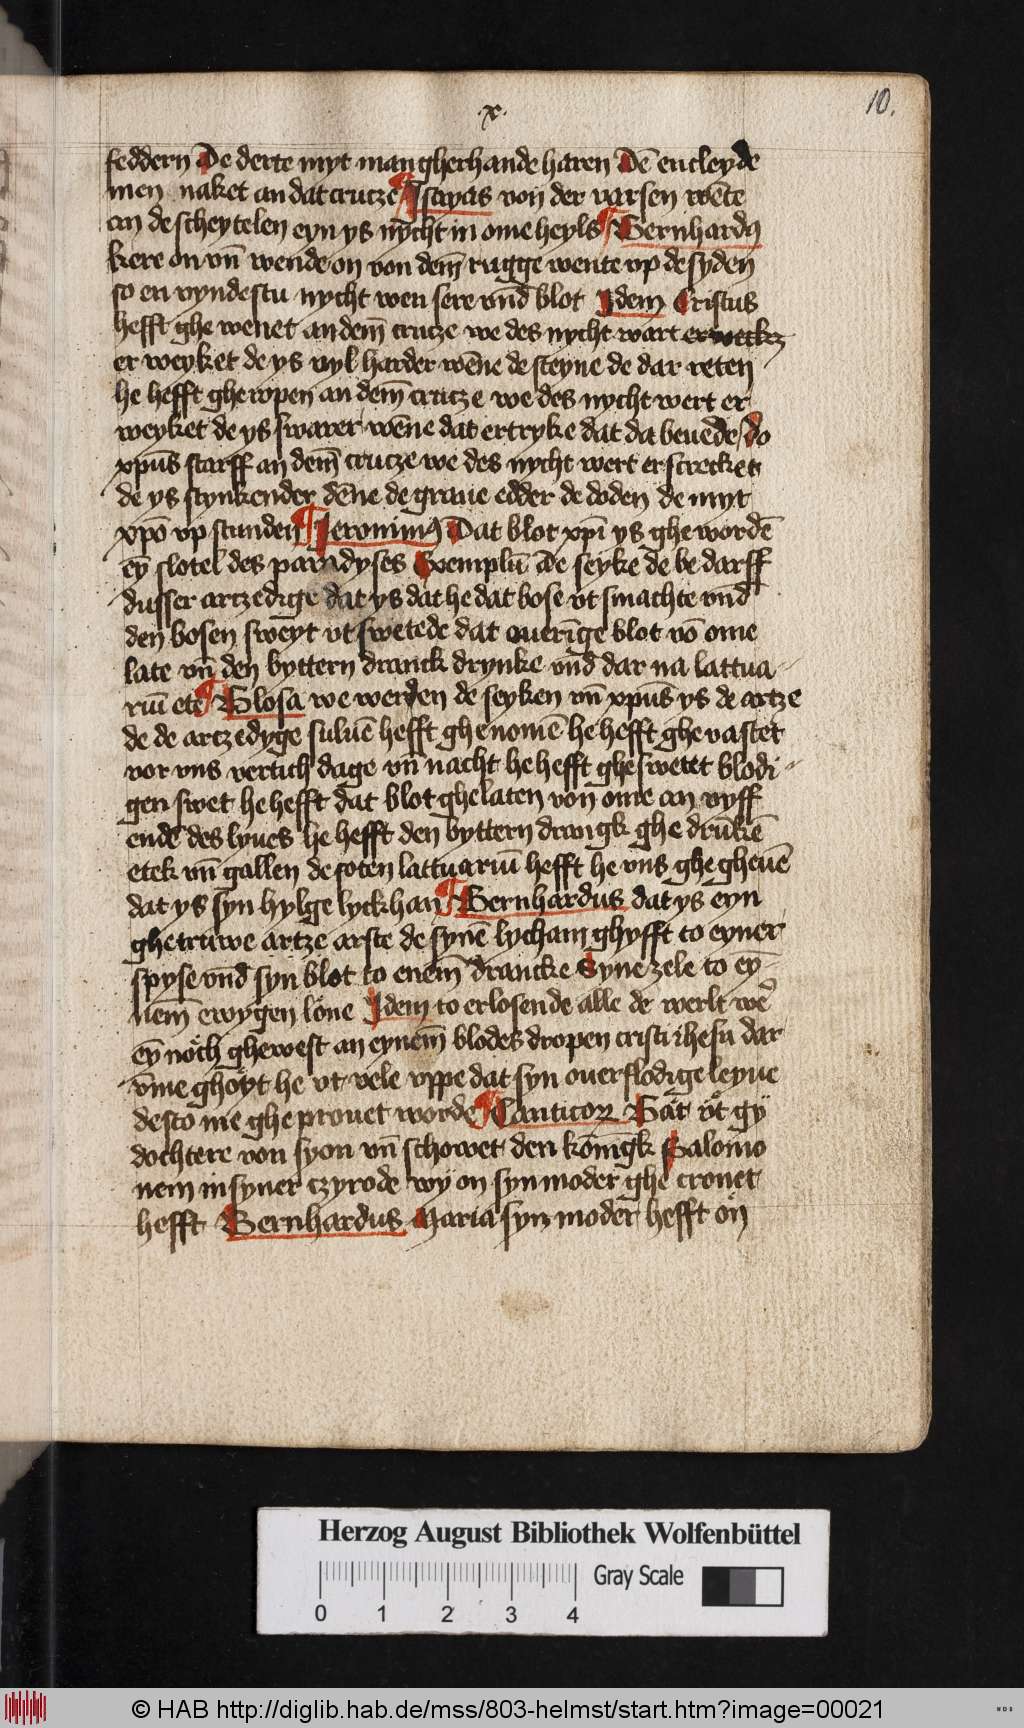 .x.
10.
feddern De derte myt mangherhande haren Dē encleyde
men naket an dat crucze Isayas von der varsen wēte
an de scheytelen eyn ys nycht in ome heyls Bernhardꝰ
kere on vn̄ wende on von dem̄ rugge wente vp de syden
so en vyndestu nycht wen sere vnd̄ blot Idem Cristus
hefft ghe wenet an dem̄ crucze we des nycht wart
er weyket de ys vyl harder wēne de steyne de dar reten
he hefft gheropen an dem̄ crucze we des nycht wert er
weyket de ys swarer wēne dat ertryke dat da beuede do
xpūs starff an dem̄ crucze we des nycht wert erscrecket
de ys stynkender dēne de graue edder de doden de myt
xpō vp stunden Jeronimꝰ Dat blot xpī ys ghe wordē
eȳ slotel des paradyses Exemplū De seyke de be darff
dusser artzedige dat ys dat he dat bose vt smachte vnd̄
den bosen sweyt vt swetede dat ouerīge blot vō ome
late vn̄ den byttern dranck drynke vnd̄ dar na lattua
riū ete Glosa we werden de seyken vn̄ xpūs ys de artze
de de artzedyge suluē hefft ghenomē he hefft ghe vastet
vor vns vertich dage vn̄ nacht he hefft ghe swetet blodi
gen swet he hefft dat blot ghelaten von ome an vyff
ende des lyues he hefft den byttern drangk ghe drūkē
etek vn̄ gallen de soten lattuariū hefft he vns ghe gheuē
dat ys syn hylge lyckham Bernhardus dat ys eyn
ghetruwe artze arste de synē lycham ghyfft to eyner
spyse vnd̄ syn blot to enem̄ drancke Syne zele to eȳ
nem̄ ewygen lone Idem to erlosende alle de werlt we͛
eȳ noch ghewest an eynem̄ blodes dropen cristi ihesu dar
vm̄e ghoyt he vt vele vppe dat syn ouerflodige leyue
desto me ghe prouet worde Canticoꝝ Gat vt gy
dochtere von syon vn̄ schowet den kōnigk Salomo
nem in syner czyrode wy on syn moder ghe cronet
hefft Bernhardus Maria syn moder hefft on
Herzog August Bibliothek Wolfenbüttel
Gray Scale
0 1 2 3 4
© HAB http://diglib.hab.de/mss/803-helmst/start.htm?image=00021